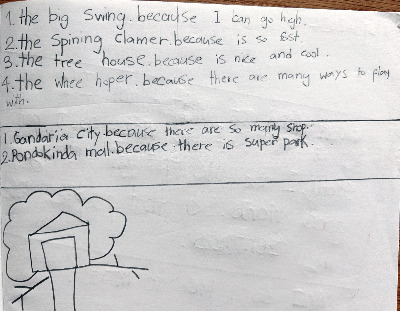 1. the big Swing. because I can go high.
2. the Spining clamer. because is so fast.
3. the tree house. because is nice and cool.
4. the whee hoper. because there are many ways to play
with.
1. Gandaria city. because there are so many shop.
2. Pondokinda mal. because there is super park.